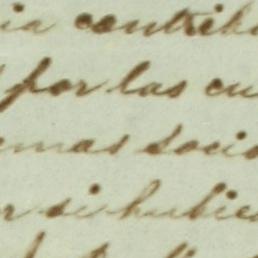 ia contrib
por las cu
emas socio
r si hubie